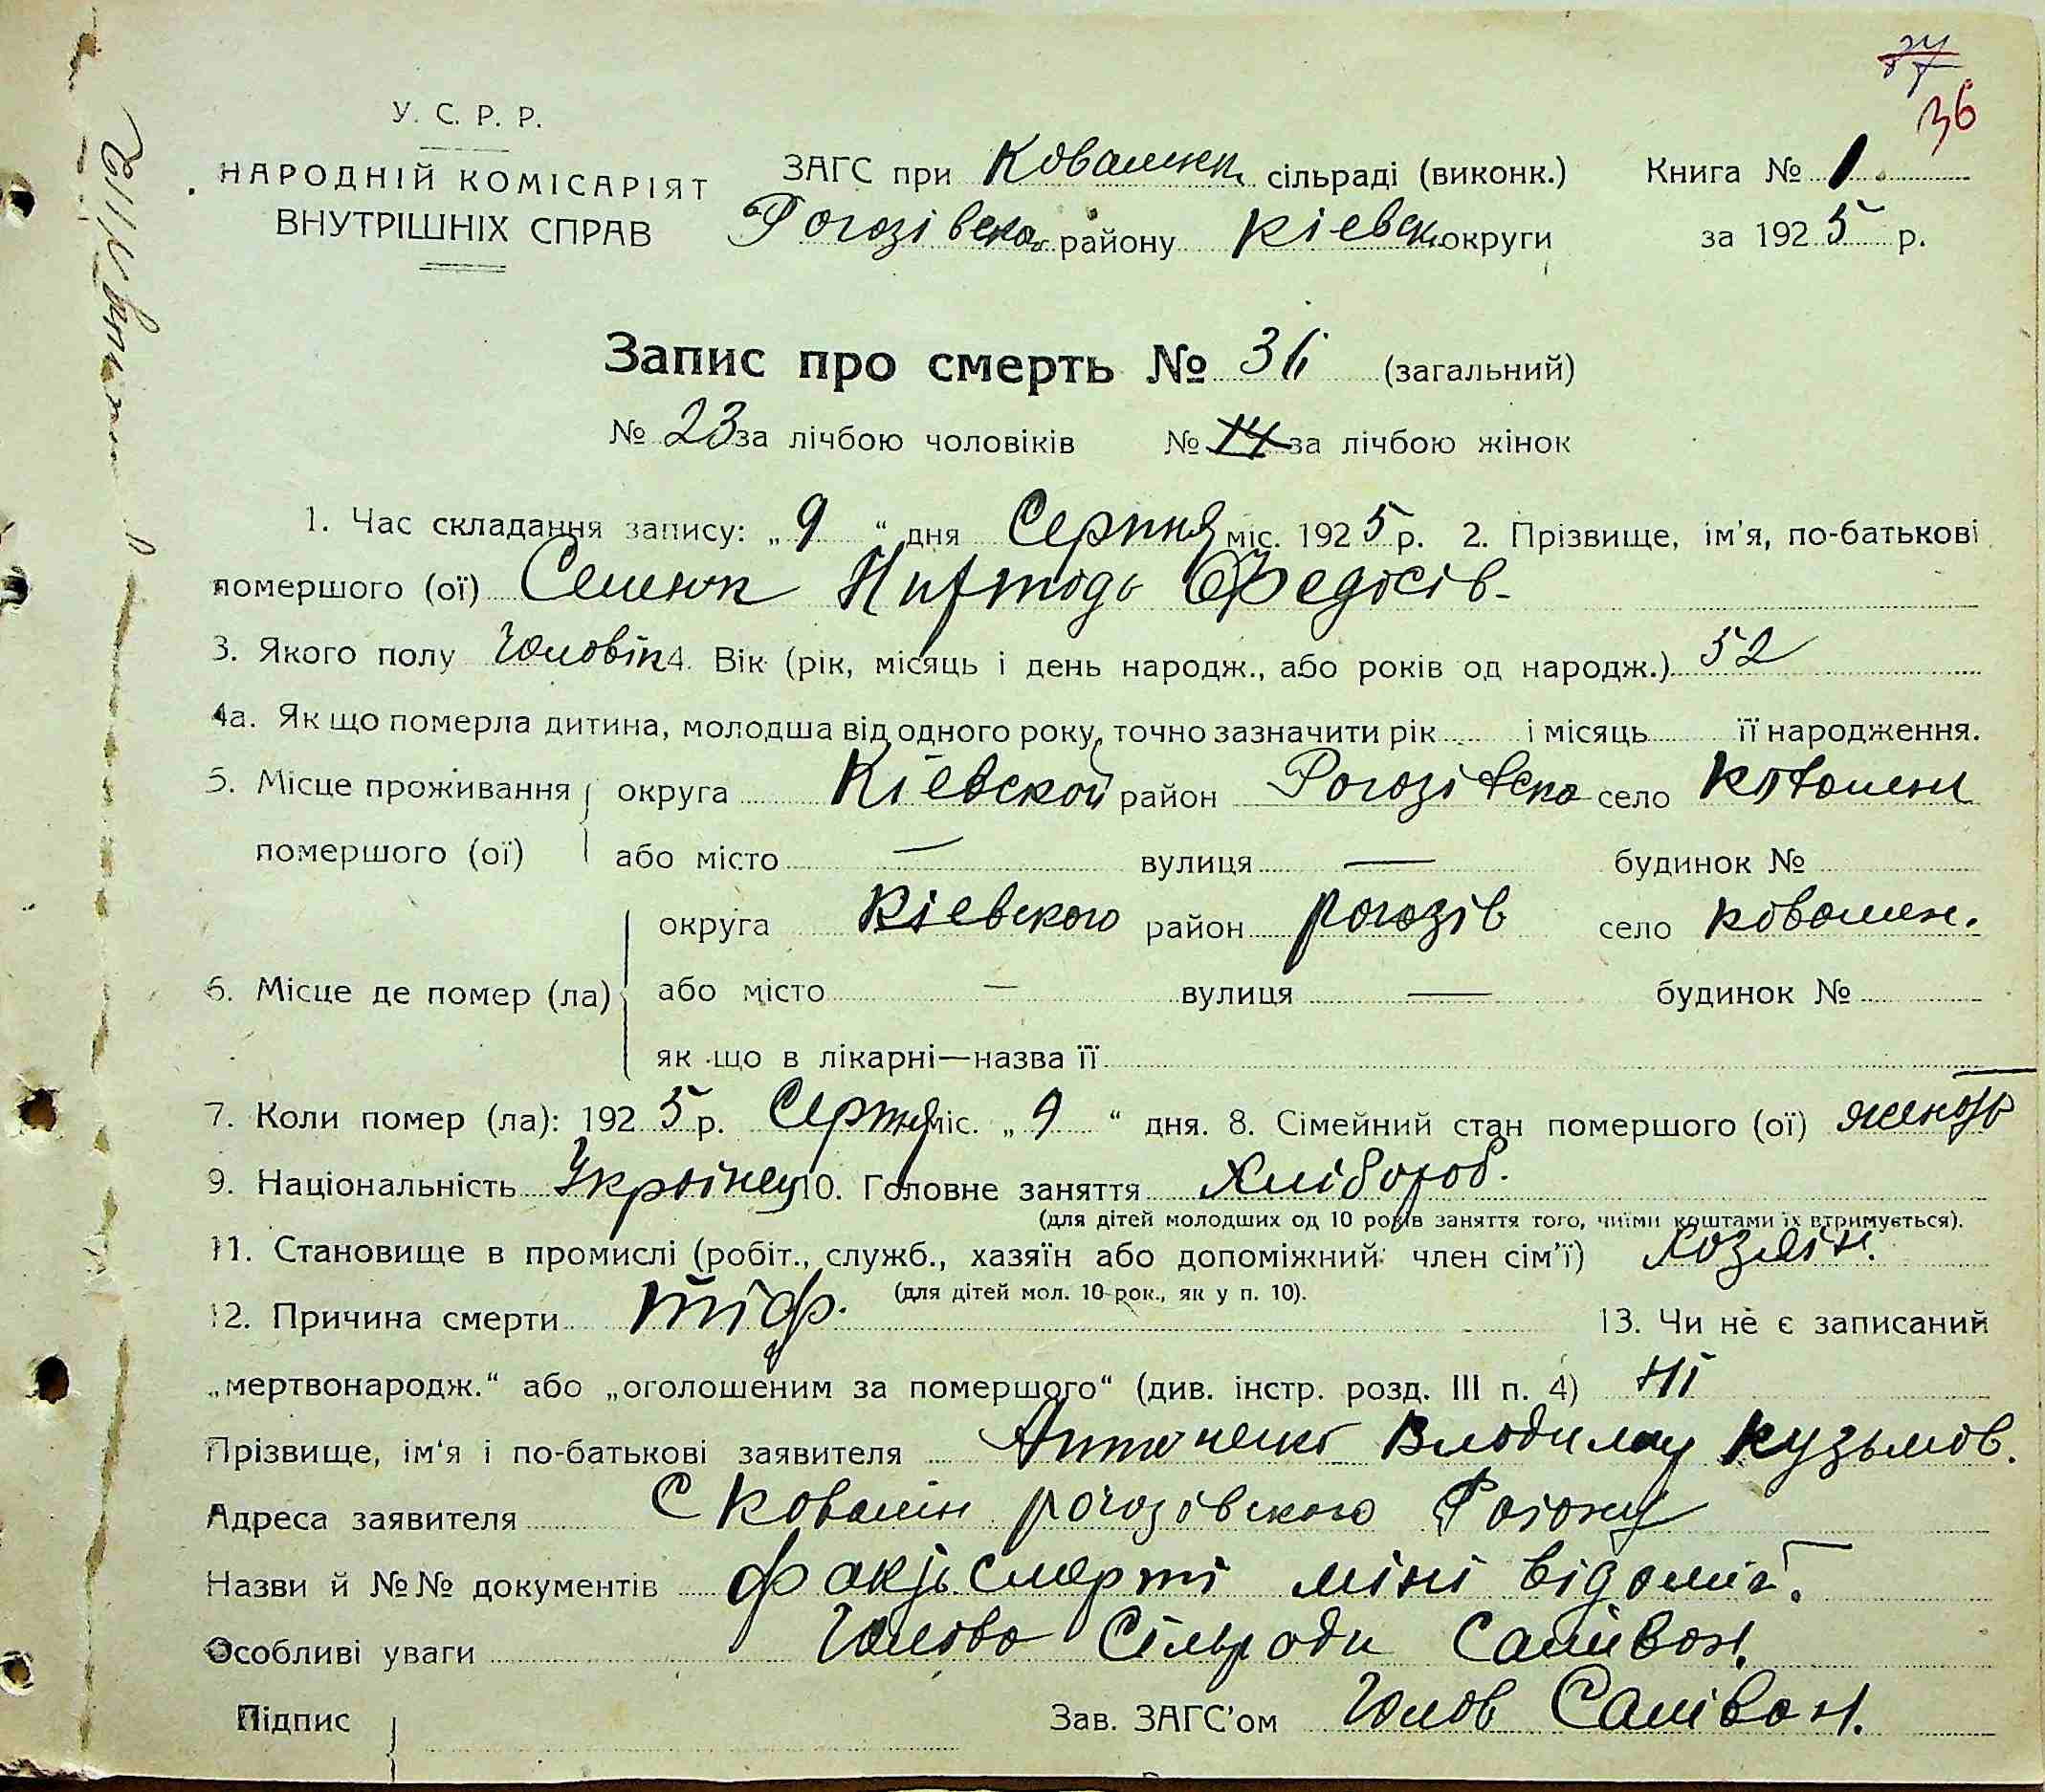 36
У. С. Р. Р.
НАРОДНІЙ КОМІСАРІЯТ
ВНУТРІШНІХ СПРАВ
ЗАГС при Ковалинк. сільраді (виконк.) Книга № 1.
Рогозівско району Кіевск. округи за 1925 р.
Запис про смерть № (загальний)
№ 23 за лічбою чоловіків № 14 за лічбою жінок
1. Час складання запису: „9“ дня Серпня міс. 1925 р. 2. Прізвище, ім'я, по-батькові
помершого (ої) Семенюк Федосів-
3. Якого полу Чоловік 4. Вік (рік, місяць і день народж., або років од народж.) 52
4а. Як що померла дитина, молодша від одного року, точно зазначити рік і місяць її народження.
5. Місце проживання округа Кіевской район Рогозівско село Ковалин
помершого (ої) або місто — вулиця — будинок №
округа Кіевского район рогозів село ковалин.
6. Місце де помер (ла) або місто — вулиця — будинок №
як що в лікарні—назва її
7. Коли помер (ла): 1925 р. Серпня міс. „9“ дня. 8. Сімейний стан помершого (ої)
9. Національність Украінец 10. Головне заняття Хлібороб.
(для дітей молодших од 10 років заняття того, чиїми коштами їх втримується).
11. Становище в промислі (робіт., служб., хазяїн або допоміжний член сім'ї) Хозяін.
(для дітей мол. 10 рок., як у п. 10).
12. Причина смерти тіф. 13. Чи не є записаний
„мертвонародж.“ або „оголошеним за помершого“ (див. інстр. розд. III п. 4) Ні
Прізвище, ім'я і по-батькові заявителя Антоненко Володимир Кузьмов.
Адреса заявителя С Ковалин рогозівского Раіону
Назви й №№ документів факт смерті міні відомий.
Особливі уваги Голова Сільради Салівон.
Підпис Зав. ЗАГС'ом Голов Салівон.